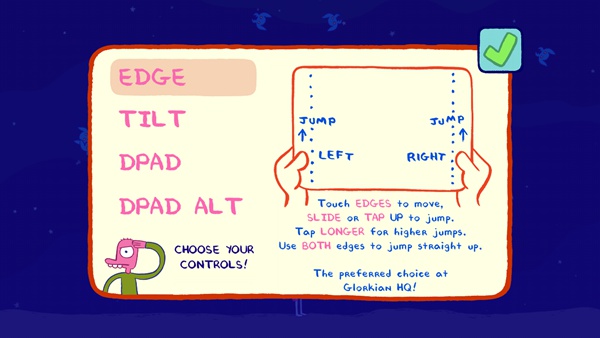 EDGE
TILT
DPAD
DPAD ALT
CHOOSE YOUR
CONTROLS!
JUMP
JUMP
LEFT
RIGHT
Touch EDGES to move,
SLIDE or TAP UP to jump.
Tap LONGER for higher jumps.
Use BOTH edges to jump straight up.
The preferred choice at
Glorkian HQ!